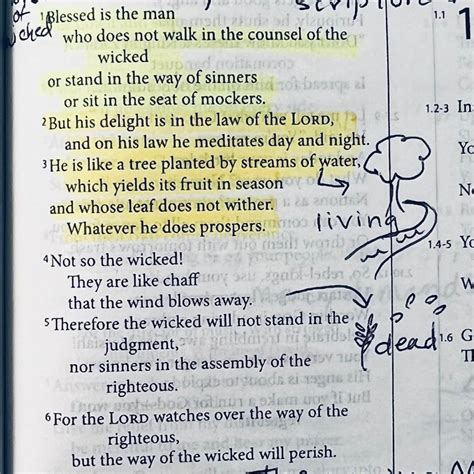 of
wicked
scripture
1 Blessed is the man
who does not walk in the counsel of the
wicked
or stand in the way of sinners
or sit in the seat of mockers.
2 But his delight is in the law of the LORD,
and on his law he meditates day and night.
3 He is like a tree planted by streams of water,
which yields its fruit in season
and whose leaf does not wither.
Whatever he does prospers.
living
4 Not so the wicked!
They are like chaff
that the wind blows away.
5 Therefore the wicked will not stand in the
judgment,
nor sinners in the assembly of the
righteous.
dead
6 For the LORD watches over the way of the
righteous,
but the way of the wicked will perish.
1.1
1
1.2-3 In
Yo
1.4-5 Yo
W
1.6 G
Th